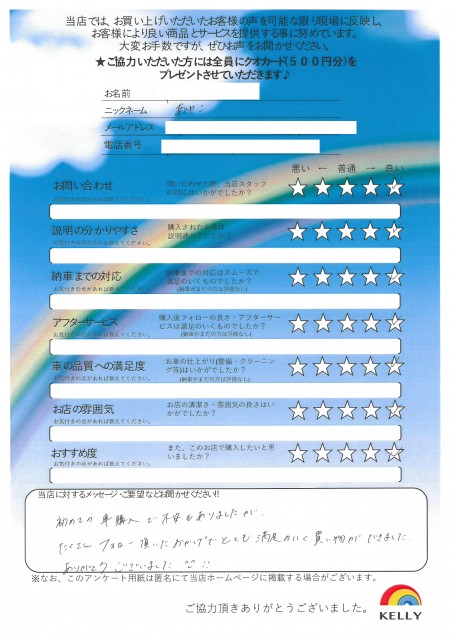 当店では、お買い上げいただいたお客様の声を可能な限り現場に反映し、
お客様により良い商品とサービスを提供する事に努めています。
大変お手数ですが、ぜひお声をお聞かせください。
★ご協力いただいた方には全員にクオカード(500円分)を
プレゼントさせていただきます♪
お名前
ニックネーム
メールアドレス
電話番号
悪い ← 普通 → 良い
お問い合わせ 問い合わせた際、当店スタッフ
の対応はいかがでしたか?
お気付きの点があれば教えてください。
説明の分かりやすさ 購入されたお車は
説明通りでしたか?
お気付きの点があれば教えてください。
納車までの対応 納車までの対応はスムーズで
満足のいくものでしたか?
お気付きの点があれば教えてください。 (納車がまだの方は評価なし)
アフターサービス 購入後フォローの良さ・アフターサー
ビスは満足のいくものでしたか?
お気付きの点があれば教えてください。 (納車がまだの方は評価なし)
車の品質への満足度 お車の仕上がり(整備・クリーニン
グ等)はいかがでしたか?
お気付きの点があれば教えてください。 (納車がまだの方は評価なし)
お店の雰囲気 お店の清潔さ・雰囲気の良さはい
かがでしたか?
お気付きの点があれば教えてください。
おすすめ度 また、このお店で購入したいと思
いましたか?
お気付きの点があれば教えてください。
当店に対するメッセージ・ご要望などお聞かせください!!
初めての車購入で不安もありましたが、
たくさんフォロー頂いたおかげでとても満足のいく買い物ができました。
ありがとうございました
※なお、このアンケート用紙は匿名にて当店ホームページに掲載する場合がございます。
ご協力頂きありがとうございました。
KELLY